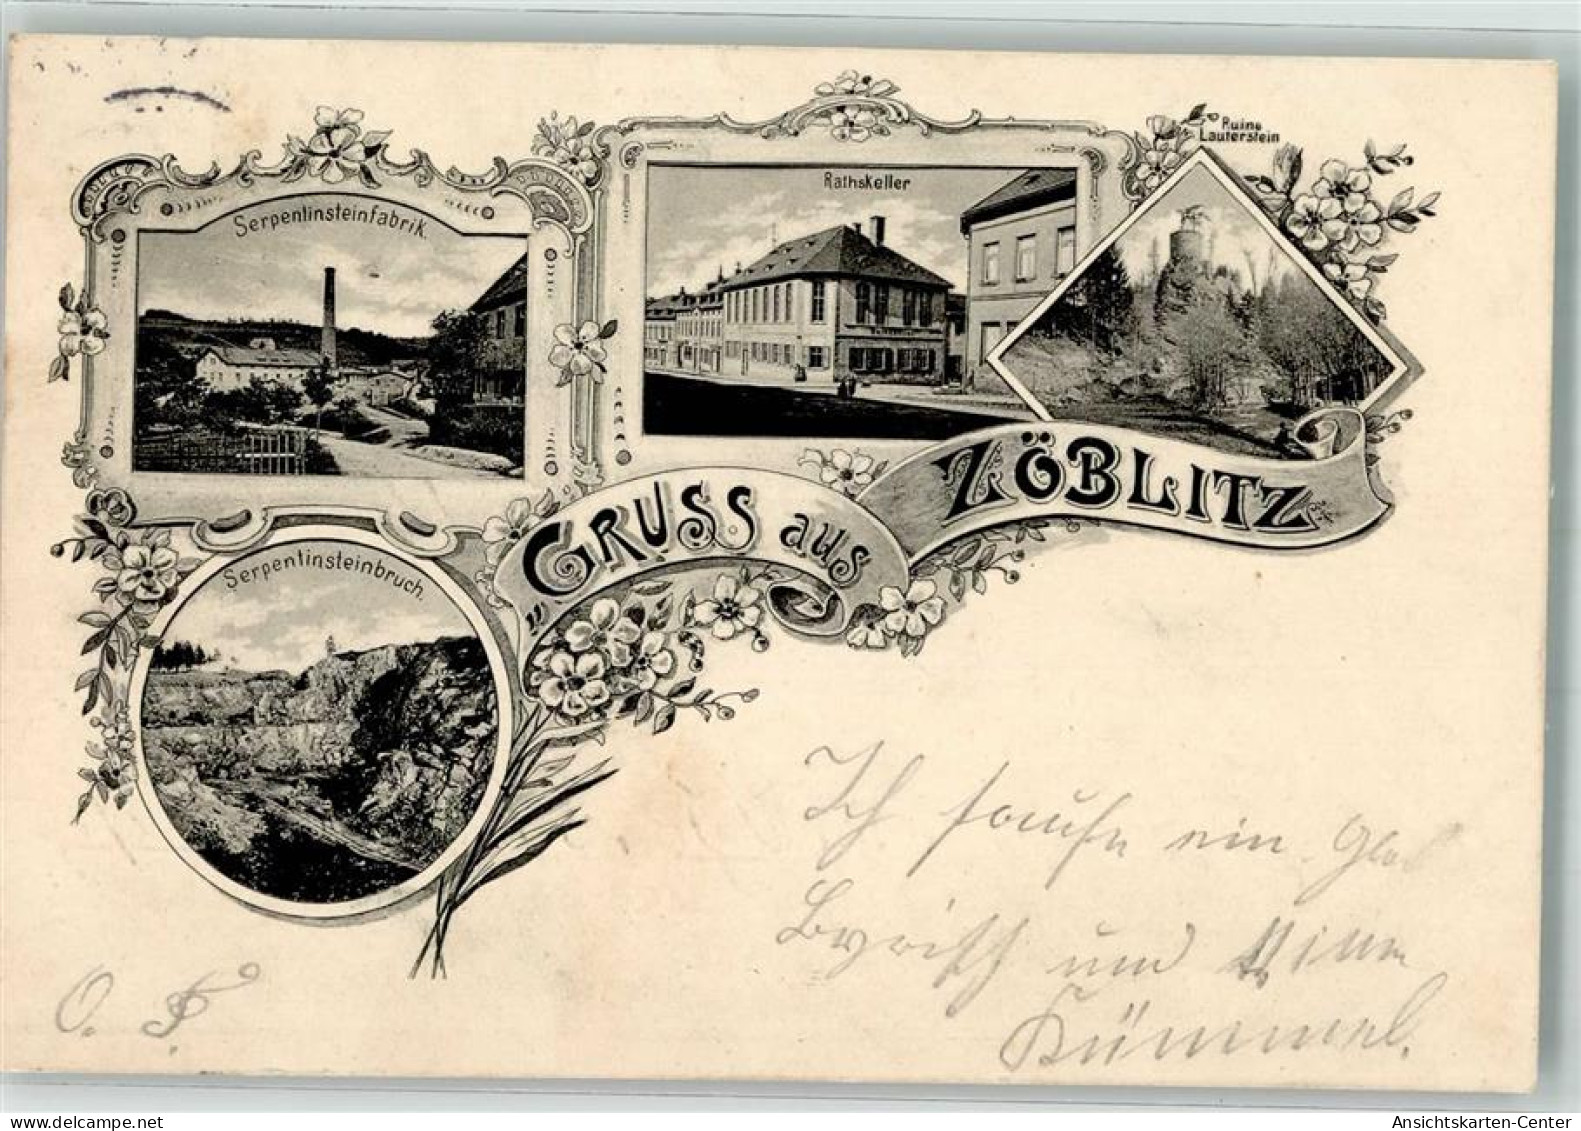 Serpentinsteinfabrik.
Rathskeller
Ruine
Lauterstein
„GRUSS aus
ZÖBLITZ
Serpentinsteinbruch.
Ich saufe ein
Byrisch und
Kümmel.
O.
www.delcampe.net
Ansichtskarten-Center